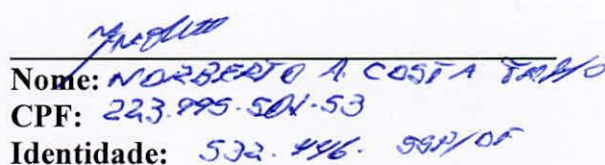 Nome: NORBERTO A. COSTA
CPF: 223.995.501-53
Identidade: 532.446. SSP/DF